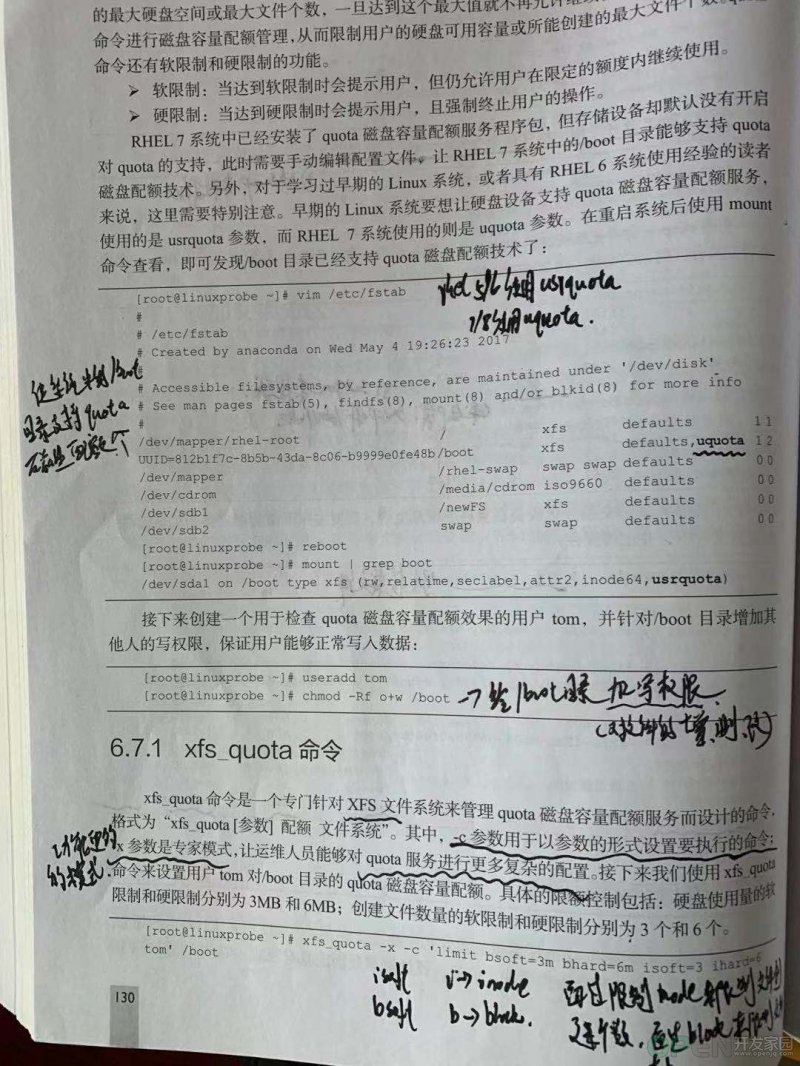 的最大硬盘空间或最大文件个数，一旦达到这个最大值就不再允许继续
命令进行磁盘容量配额管理，从而限制用户的硬盘可用容量或所能创建的最大文件个数。
命令还有软限制和硬限制的功能。
➢ 软限制：当达到软限制时会提示用户，但仍允许用户在限定的额度内继续使用。
➢ 硬限制：当达到硬限制时会提示用户，且强制终止用户的操作。
RHEL 7 系统中已经安装了 quota 磁盘容量配额服务程序包，但存储设备却默认没有开启
对 quota 的支持，此时需要手动编辑配置文件，让 RHEL 7 系统中的/boot 目录能够支持 quota
磁盘配额技术。另外，对于学习过早期的 Linux 系统，或者具有 RHEL 6 系统使用经验的读者
来说，这里需要特别注意。早期的 Linux 系统要想让硬盘设备支持 quota 磁盘容量配额服务，
使用的是 usrquota 参数，而 RHEL 7 系统使用的则是 uquota 参数。在重启系统后使用 mount
命令查看，即可发现/boot 目录已经支持 quota 磁盘配额技术了：
[root@linuxprobe ~]# vim /etc/fstab
rhel 5/6 使用 usrquota
7/8使用uquota.
#
# /etc/fstab
# Created by anaconda on Wed May 4 19:26:23 2017
#
# Accessible filesystems, by reference, are maintained under '/dev/disk'
# See man pages fstab(5), findfs(8), mount(8) and/or blkid(8) for more info
#
/dev/mapper/rhel-root / xfs defaults 1 1
UUID=812b1f7c-8b5b-43da-8c06-b9999e0fe48b /boot xfs defaults,uquota 1 2
/dev/mapper /rhel-swap swap swap defaults 0 0
/dev/cdrom /media/cdrom iso9660 defaults 0 0
/dev/sdb1 /newFS xfs defaults 0 0
/dev/sdb2 swap swap defaults 0 0
[root@linuxprobe ~]# reboot
[root@linuxprobe ~]# mount | grep boot
/dev/sda1 on /boot type xfs (rw,relatime,seclabel,attr2,inode64,usrquota)
/boot
目录支持 quota
接下来创建一个用于检查 quota 磁盘容量配额效果的用户 tom，并针对/boot 目录增加其
他人的写权限，保证用户能够正常写入数据：
[root@linuxprobe ~]# useradd tom
[root@linuxprobe ~]# chmod -Rf o+w /boot
→ 给/boot目录 加写权限.
6.7.1 xfs_quota 命令
xfs_quota 命令是一个专门针对 XFS 文件系统来管理 quota 磁盘容量配额服务而设计的命令，
格式为“xfs_quota [参数] 配额 文件系统”。其中，-c 参数用于以参数的形式设置要执行的命令；
-x 参数是专家模式，让运维人员能够对 quota 服务进行更多复杂的配置。接下来我们使用 xfs_quota
命令来设置用户 tom 对/boot 目录的 quota 磁盘容量配额。具体的限额控制包括：硬盘使用量的软
限制和硬限制分别为 3MB 和 6MB；创建文件数量的软限制和硬限制分别为 3 个和 6 个。
的模式.
[root@linuxprobe ~]# xfs_quota -x -c 'limit bsoft=3m bhard=6m isoft=3 ihard=6
tom' /boot
isoft i→inode
bsoft b→block.
130
开发家园
www.openjq.com